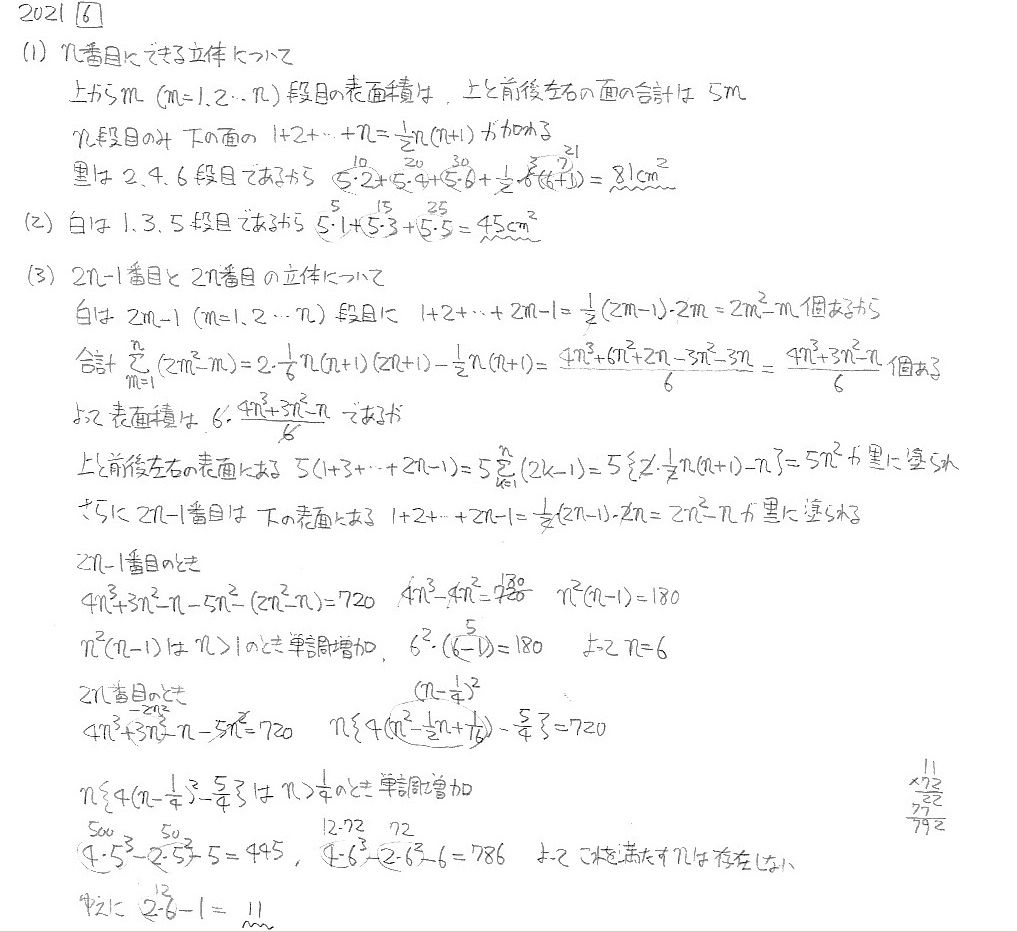 2021 6
(1) n番目にできる立体について
上からm (m=1,2…n) 段目の表面積は、上と前後左右の面の合計は 5m
n段目のみ 下の面の 1+2+…+n=1/2n(n+1) が加わる
黒は 2.4.6段目であるから 5·2+5·4+5·6+1/2·6(6+1)=81cm² 10 20 30 3 7 21
(2) 白は 1.3.5段目であるから 5·1+5·3+5·5=45cm² 5 15 25
(3) 2n-1番目と 2n番目の立体について
白は 2m-1 (m=1,2…n) 段目に 1+2+…+2m-1=1/2(2m-1)·2m=2m²-m 個あるから
合計 Σ[m=1→n](2m²-m)=2·1/6n(n+1)(2n+1)-1/2n(n+1)=(4n³+6n²+2n-3n²-3n)/6=(4n³+3n²-n)/6 個ある
よって表面積は 6·(4n³+3n²-n)/6 であるが
上と前後左右の表面にある 5(1+3+…+2n-1)=5Σ[k=1→n](2k-1)=5{2·1/2n(n+1)-n}=5n² が黒に塗られ
さらに 2n-1番目は 下の表面にある 1+2+…+2n-1=1/2(2n-1)·2n=2n²-n が黒に塗られる
2n-1番目のとき
4n³+3n²-n-5n²-(2n²-n)=720 4n³-4n²=720 180 n²(n-1)=180
n²(n-1)は n>1のとき単調増加、6²·(6-1)=180 5 よって n=6
2n番目のとき (n-1/4)²
4n³+3n²-n-5n²=720 -2n² n{4(n²-1/2n+1/16)-5/4}=720
n{4(n-1/4)²-5/4}は n>1/4のとき単調増加
4·5³-2·5²-5=445, 4·6³-2·6²-6=786 500 50 12·72 72 よって これを満たすnは存在しない
ゆえに 2·6-1=11 12
11
×72
22
77
792